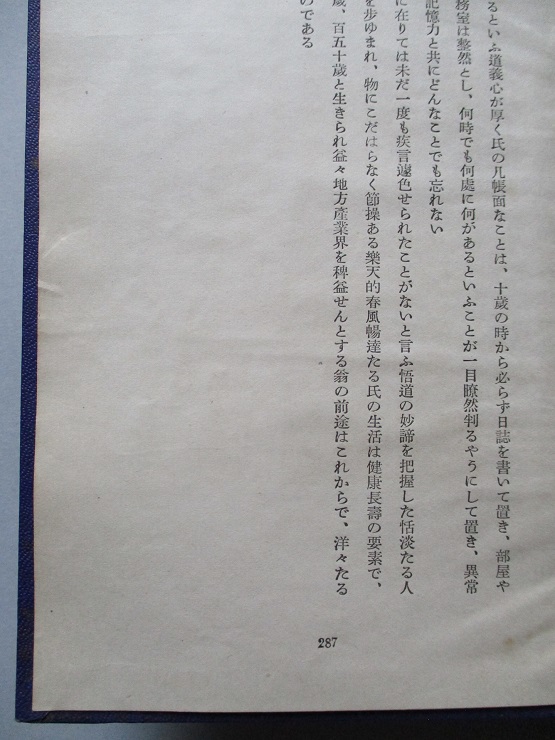 るといふ道義心が厚く氏の几帳面なことは、十歳の時から必らず日誌を書いて置き、部屋や
務室は整然とし、何時でも何處に何があるといふことが一目瞭然判るやうにして置き、異常
記憶力と共にどんなことでも忘れない
に在りては未だ一度も疾言遽色せられたことがないと言ふ悟道の妙諦を把握した恬淡たる人
を歩ゆまれ、物にこだはらなく節操ある樂天的春風暢達たる氏の生活は健康長壽の要素で、
歳、百五十歲と生きられ益々地方產業界を稗益せんとする翁の前途はこれからで、洋々たる
のである
287